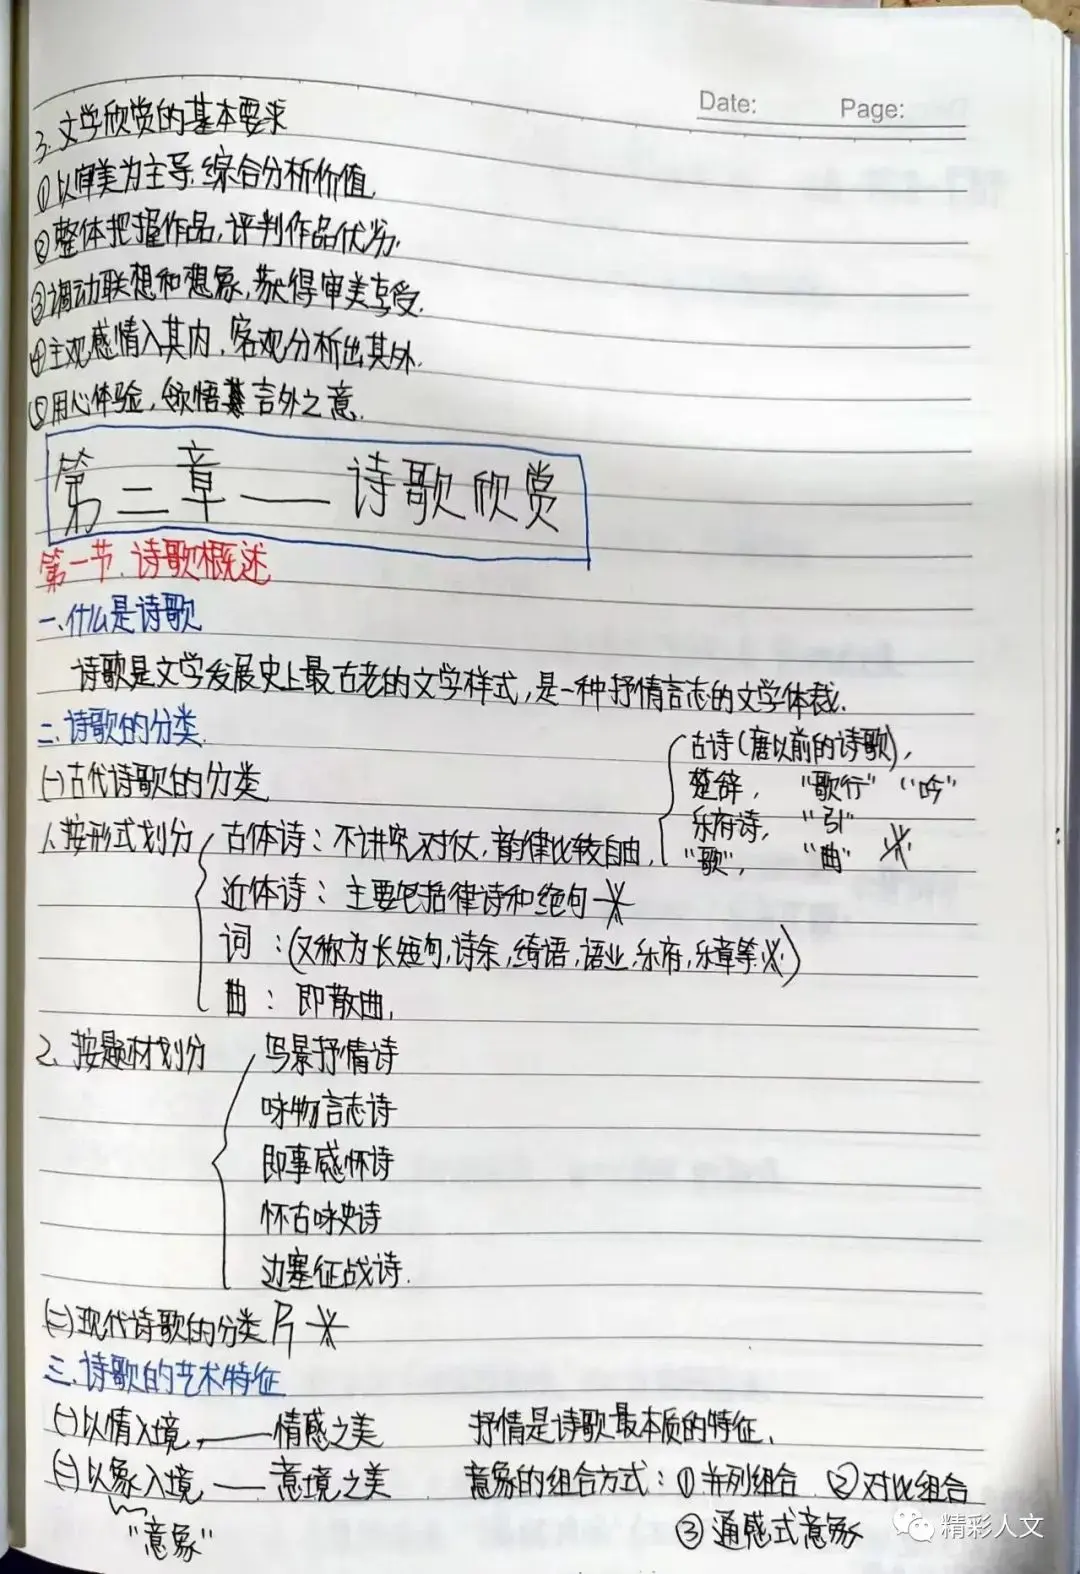 Date: Page:
3. 文学欣赏的基本要求
①以审美为主导.综合分析价值.
②整体把握作品,评判作品优劣.
③调动联想和想象,获得审美享受.
④主观感情入其内.客观分析出其外.
⑤用心体验,领悟其言外之意.
第二章——诗歌欣赏
第一节.诗歌概述
一.什么是诗歌
诗歌是文学发展史上最古老的文学样式,是一种抒情言志的文学体裁.
二.诗歌的分类.
(一)古代诗歌的分类
1.按形式划分 古体诗:不讲究对仗,韵律比较自由.
古诗(唐以前的诗歌),
楚辞, "歌行" "吟"
乐府诗, "引"
"歌", "曲"
近体诗:主要包括律诗和绝句
词:(又称为长短句,诗余,绮语,语业,乐府,乐章等)
曲:即散曲.
2.按题材划分 写景抒情诗
咏物言志诗
即事感怀诗
怀古咏史诗
边塞征战诗.
(二)现代诗歌的分类
三.诗歌的艺术特征
(一)以情入境,——情感之美 抒情是诗歌最本质的特征.
(二)以象入境——意境之美 意象的组合方式:①并列组合 ②对比组合
"意象" ③通感式意象
精彩人文